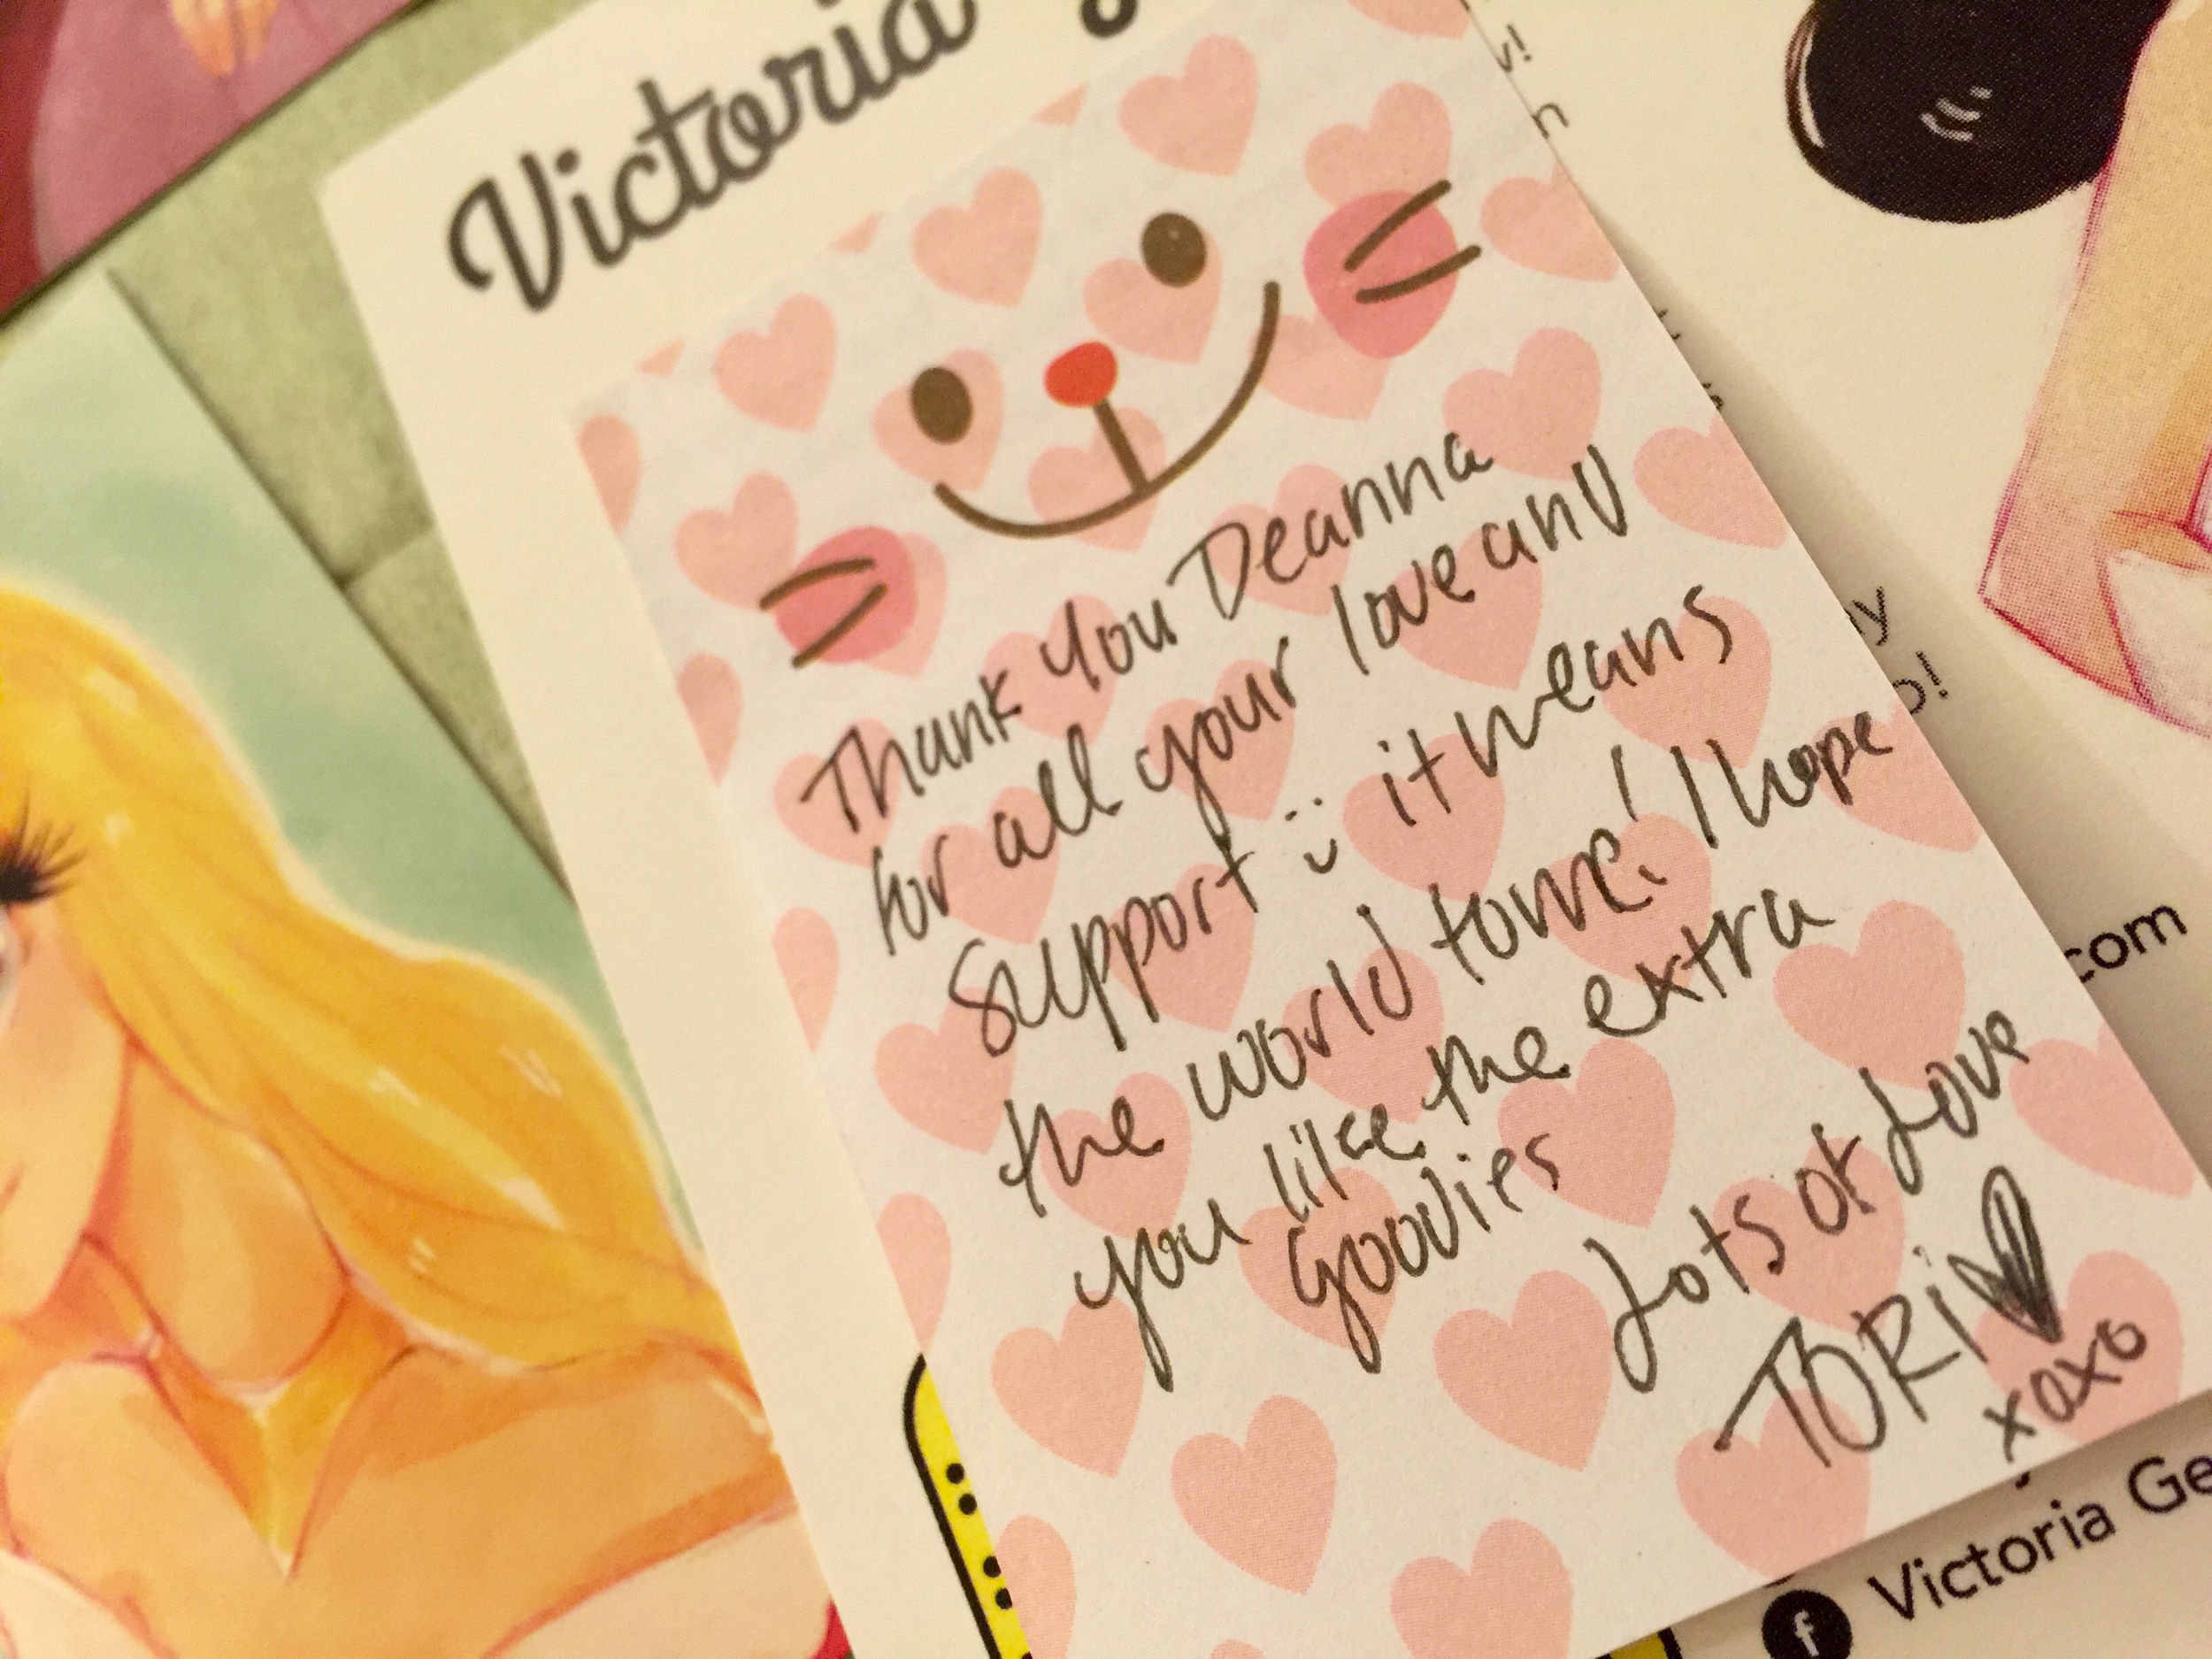 Victoria
Thank you Deanna
for all your love and
support :) it means
the world to me! I hope
you like the extra
goodies
Lots of Love
TORI ♥
xoxo
.com
f Victoria Ge